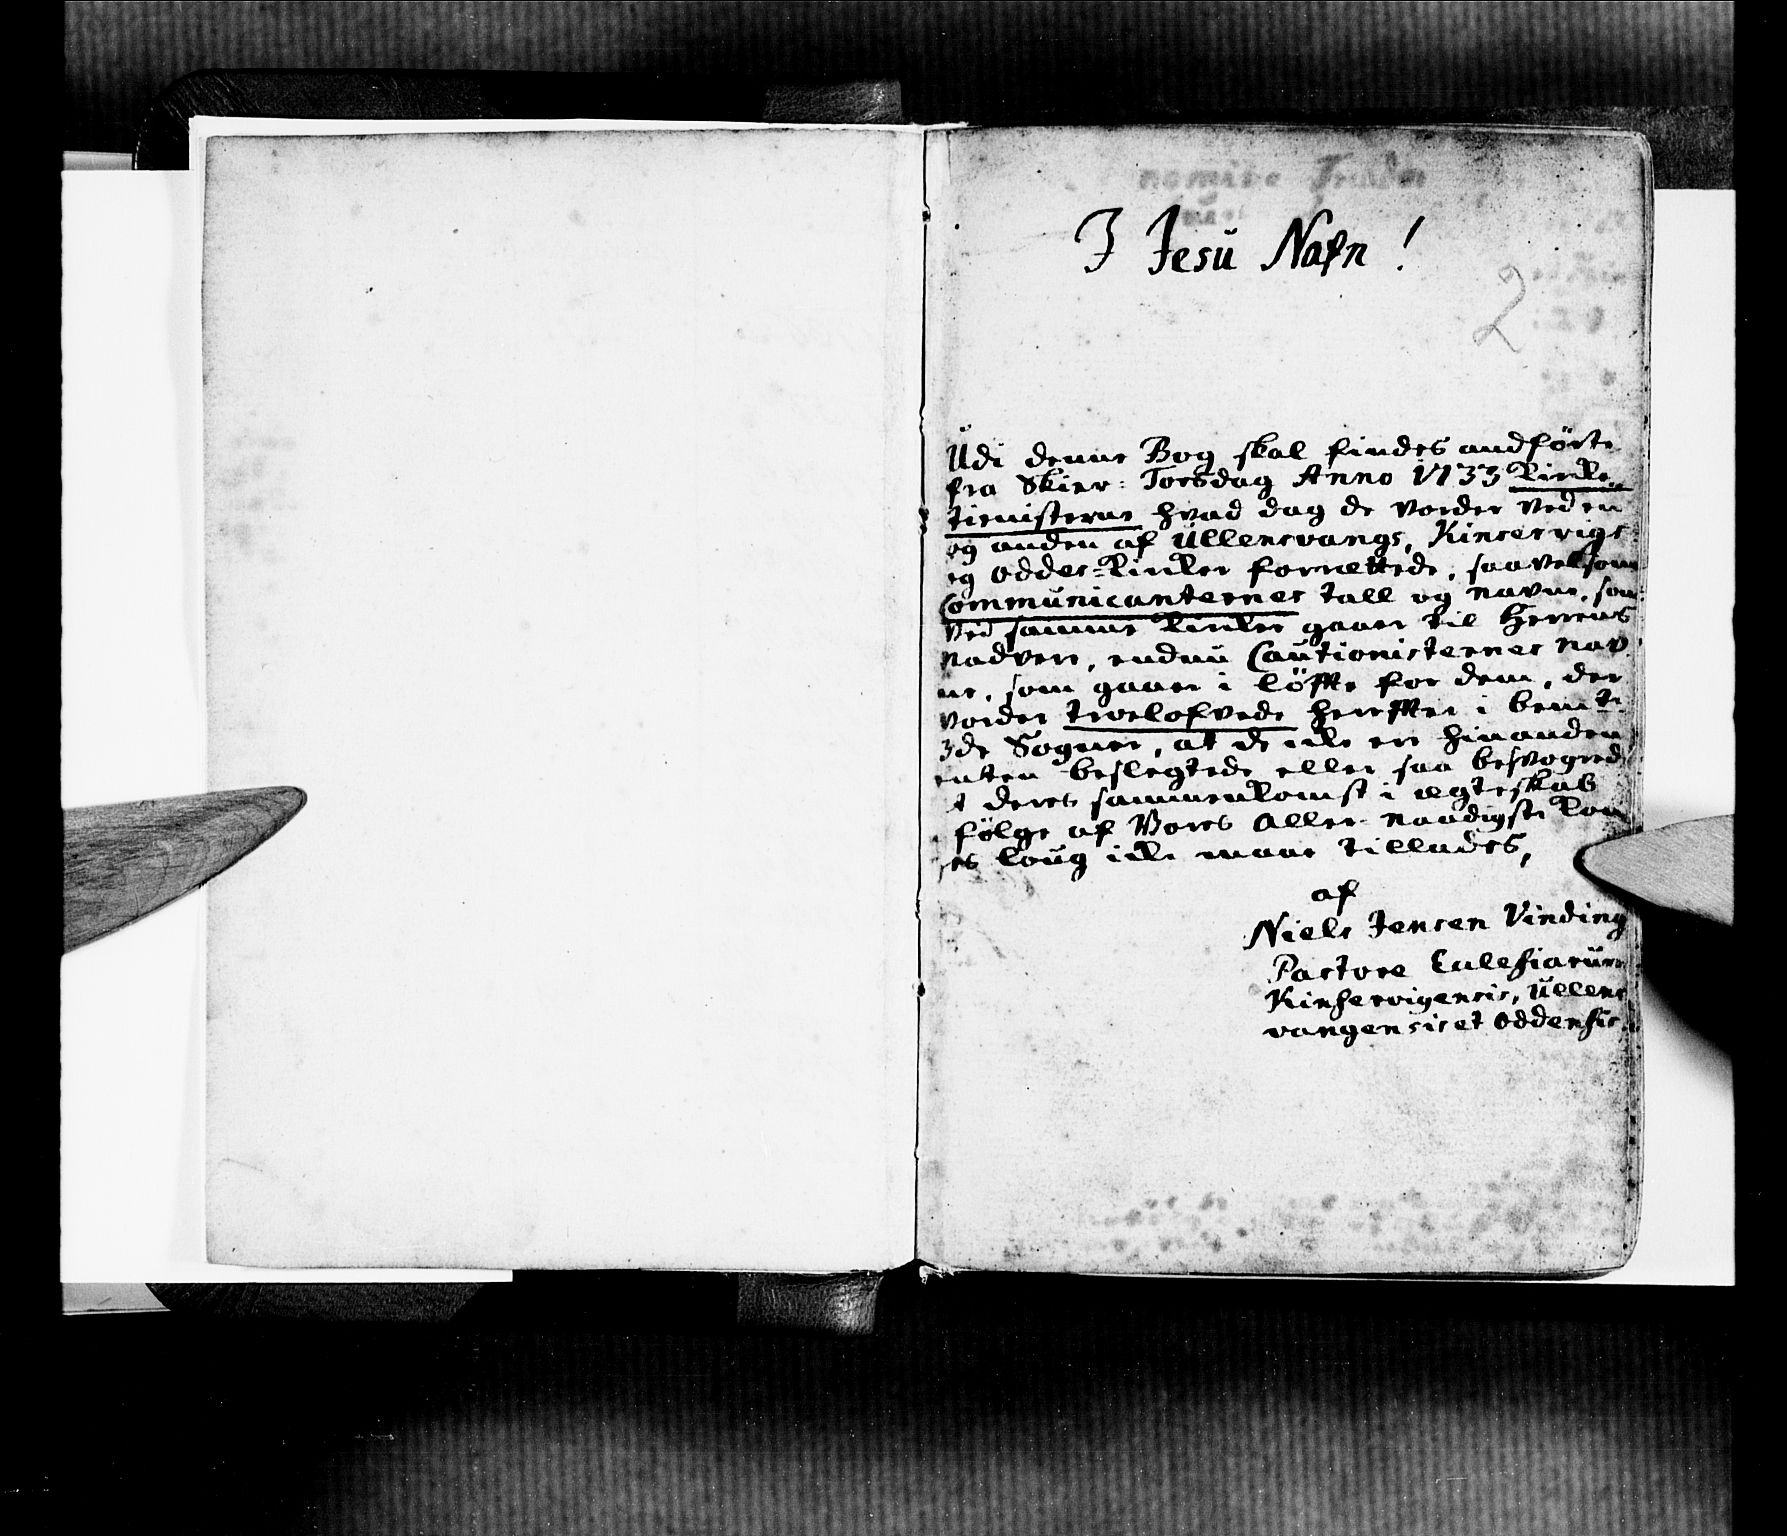 I Jesu Nafn!
2
Udi denne Bog skal findes andførte
fra Skier: Torsdag Anno 1733 Kirke-
tienisterne hvad dag de vorder ved en
og anden af Ullensvangs, Kinservigs
og Oddes-Kirker forrættede, saavelsom
Communicanternes tall og navne, som
ved samme Kirker gaaer til Herrens
nadvere, endnu Cautionisternes nav
ne, som gaaer i löffte for dem, der
vorder trolofvede herefter i bemte
3de Sogner, at de icke ere hinanden
enten beslegtede eller saa besvogred
t deres sammenkomst i ægteskab
følge af Vores Aller-naadigste Kon
es loug icke maae tillades,
af
Niels Jensen Vinding
Pastore Ecclesiarum
Kinservigensis, Ullens
vangensis et Oddensis.